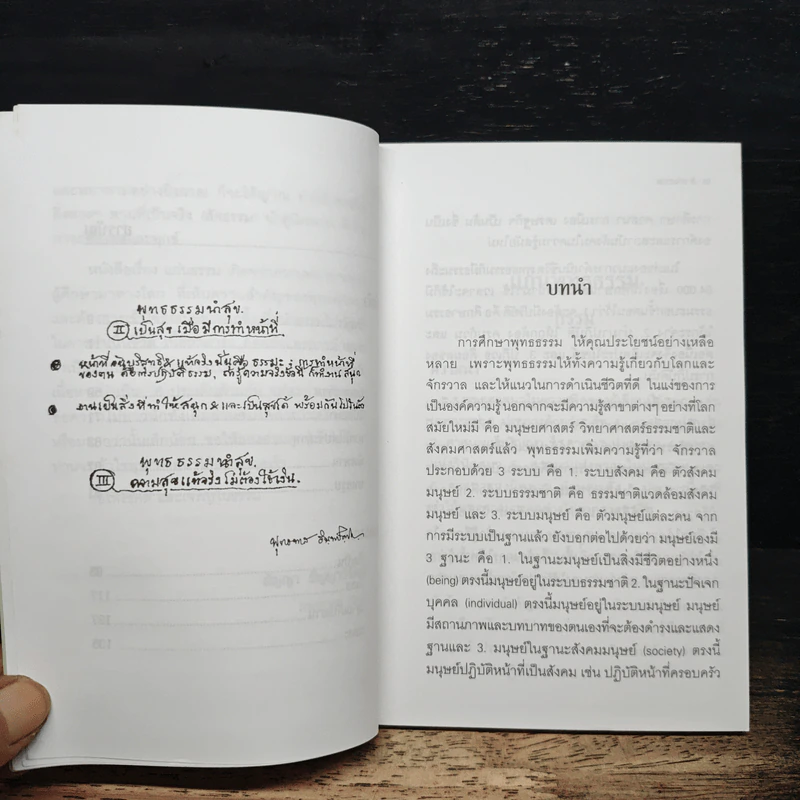 พุทธธรรมนำสุข.
II เป็นสุข เมื่อมีการทำหน้าที่
หน้าที่ อันบริสุทธิ์แท้จริง นั้นคือ ธรรมะ : การทำหน้าที่
ของตน คือการปฏิบัติธรรม, ถ้ารู้ความจริงข้อนี้ ก็ทำงานสนุก
งานเป็นสิ่งที่ทำให้สนุก และเป็นสุขได้ พร้อมกันไปในตัว
พุทธธรรมนำสุข.
III ความสุขแท้จริง ไม่ต้องใช้เงิน.
พุทธทาส อินทปัญโญ
บทนำ
การศึกษาพุทธธรรม ให้คุณประโยชน์อย่างเหลือ
หลาย เพราะพุทธธรรมให้ทั้งความรู้เกี่ยวกับโลกและ
จักรวาล และให้แนวในการดำเนินชีวิตที่ดี ในแง่ของการ
เป็นองค์ความรู้นอกจากจะมีความรู้สาขาต่างๆ อย่างที่โลก
สมัยใหม่มี คือ มนุษยศาสตร์ วิทยาศาสตร์ธรรมชาติและ
สังคมศาสตร์แล้ว พุทธธรรมเพิ่มความรู้ที่ว่า จักรวาล
ประกอบด้วย 3 ระบบ คือ 1. ระบบสังคม คือ ตัวสังคม
มนุษย์ 2. ระบบธรรมชาติ คือ ธรรมชาติแวดล้อมสังคม
มนุษย์ และ 3. ระบบมนุษย์ คือ ตัวมนุษย์แต่ละคน จาก
การมีระบบเป็นฐานแล้ว ยังบอกต่อไปด้วยว่า มนุษย์เองมี
3 ฐานะ คือ 1. ในฐานะมนุษย์เป็นสิ่งมีชีวิตอย่างหนึ่ง
(being) ตรงนี้มนุษย์อยู่ในระบบธรรมชาติ 2. ในฐานะปัจเจก
บุคคล (individual) ตรงนี้มนุษย์อยู่ในระบบมนุษย์ มนุษย์
มีสถานภาพและบทบาทของตนเองที่จะต้องดำรงและแสดง
ฐานและ 3. มนุษย์ในฐานะสังคมมนุษย์ (society) ตรงนี้
มนุษย์ปฏิบัติหน้าที่เป็นสังคม เช่น ปฏิบัติหน้าที่ครอบครัว